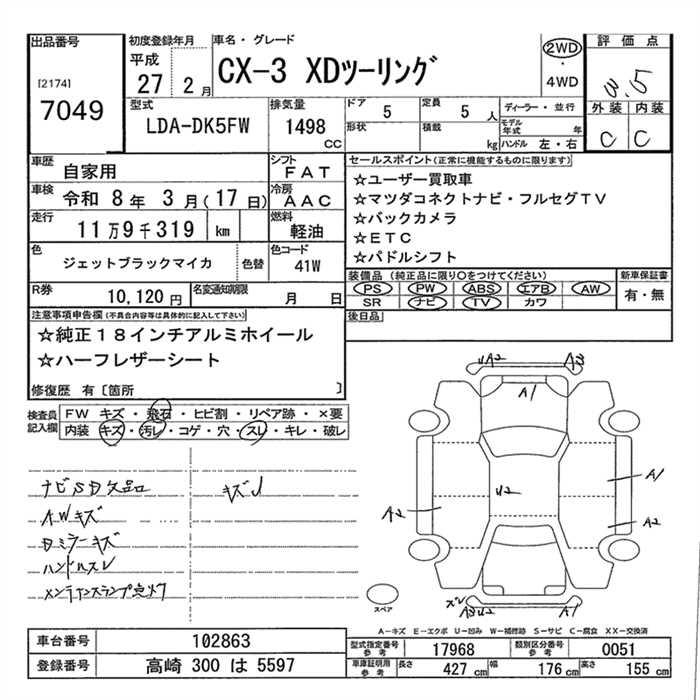 出品番号
[2174]
7049
初度登録年月
平成
27 2 月
車名・グレード
CX-3 XDツーリング
2WD
・
4WD
評価点
3.5
外装 内装
C C
型式
LDA-DK5FW
排気量
1498
CC
ドア 5
定員 5 人
形状
積載 kg
ディーラー・並行
モデル年式 年
ハンドル 左・右
車歴 自家用
シフト FAT
車検 令和 8 年 3 月 ( 17 日)
冷房 AAC
走行 11 万 9 千 319 km
燃料 軽油
色 ジェットブラックマイカ 色替
色コード 41W
R券 10,120 円
名変通知期限 月 日
セールスポイント(正常に機能するものに限ります)
☆ユーザー買取車
☆マツダコネクトナビ・フルセグTV
☆バックカメラ
☆ETC
☆パドルシフト
装備品 (純正品に限り○をつけてください)
PS PW ABS エアB AW
SR ナビ TV カワ
新車保証書
有・無
後日品
注意事項申告欄(不具合内容等は具体的に記入して下さい)
☆純正18インチアルミホイール
☆ハーフレザーシート
修復歴 有〔箇所 〕
検査員記入欄
FW キズ・飛石・ヒビ割・リペア跡・×要
内装 キズ・汚レ・コゲ・穴・スレ・キレ・破レ
ナビSD欠品
AWキズ
Dミラーキズ
ハンドルスレ
メンテナンスランプ点灯
UA2 A3
A1
A1
U2
A2
A2
A3U2 A1
スペア
A－キズ E－エクボ U－凹み W－補修跡 S－サビ C－腐食 XX－交換済
車台番号 102863
登録番号 高崎 300 は 5597
型式指定番号参考 17968
類別区分番号参考 0051
車庫証明用参考 長さ 427 cm 幅 176 cm 高さ 155 cm